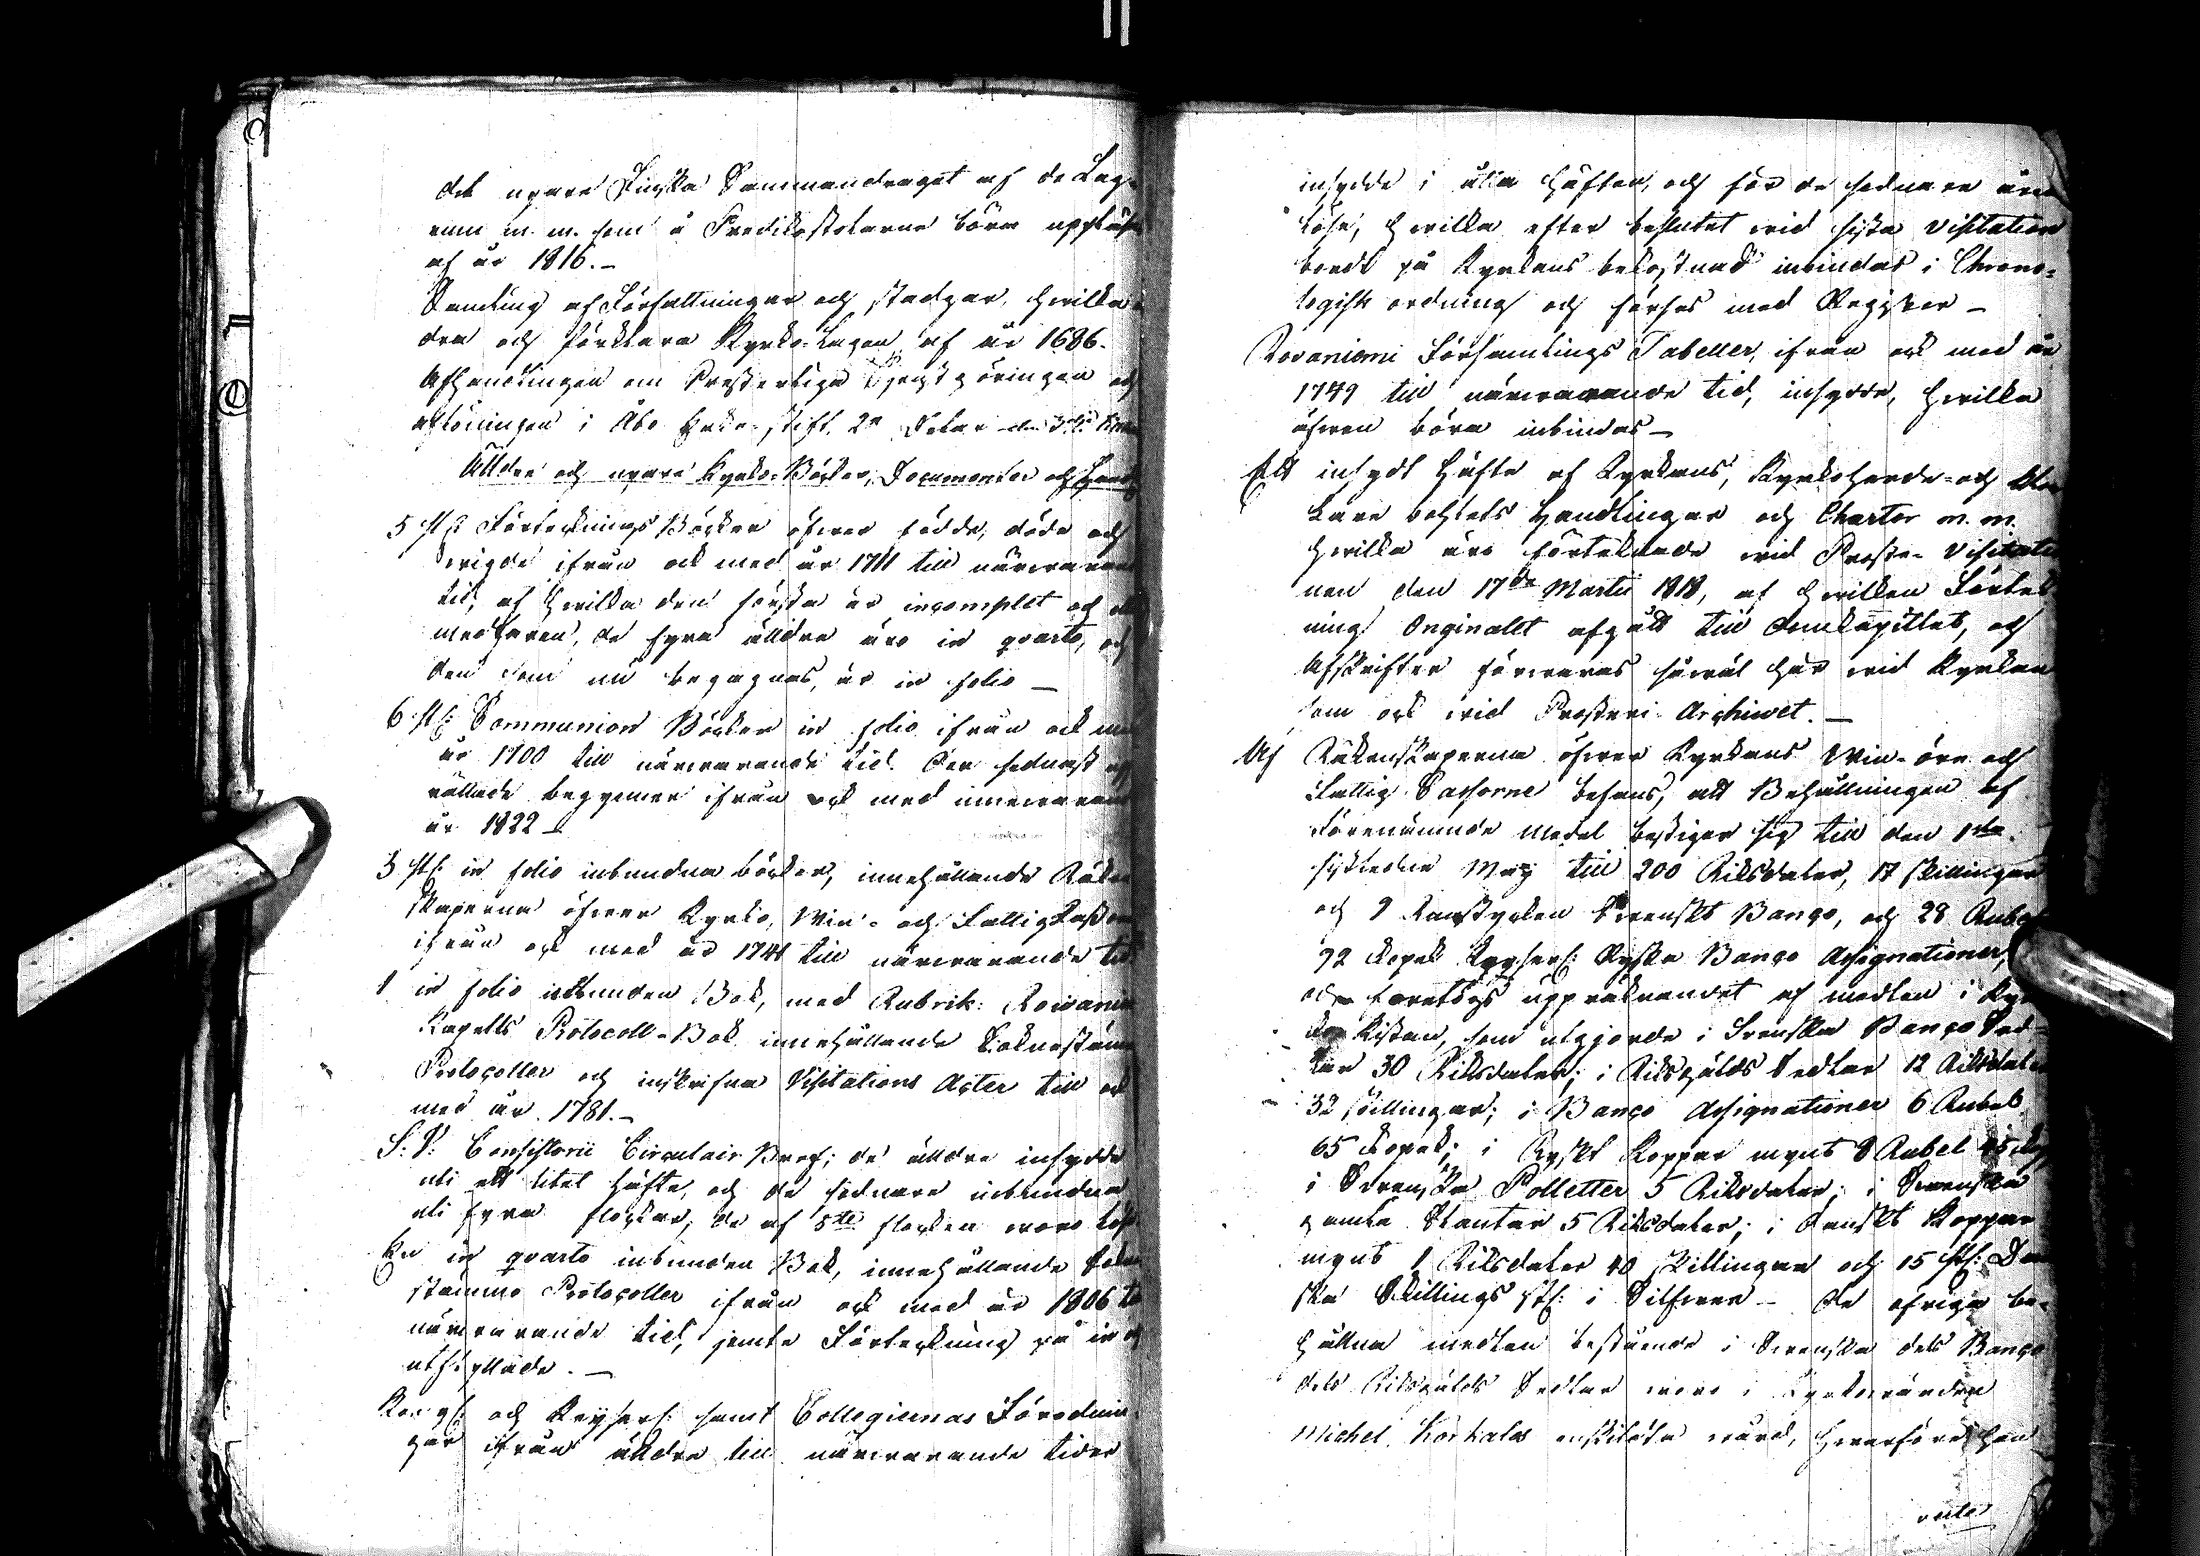 det nyare Finska Sammandraget af de Lag-
rum m. m. som å Predikostolarne böra uppläsas
af år 1816.-
Samling af Författningar och stadgar, hvilka
dra och förklara Kyrko-Lagen af år 1686.
Afhandlingen om Presterliga tjenstgöringen och
aflöningen i Åbo Erke-stift, 2n Delar
Älldre och nyare Kyrko-Böcker, Documenter och
5 st: Förtecknings Böcker öfver födde, döde och
vigde ifrån och med år 1711 till närvarande
tid, af hvilka den första är incomplet och
medfaren, de fyra älldre äro in qvarto, och
den som nu begagnas, är in folio -
6 st: Communion Böcker in folio ifrån och med
år 1700 till närvarande tid. Den sednast
rättade begynner ifrån och med innevarande
år 1822 -
3 st: in folio inbundna böcker, innehållande Räken
skaperna öfver Kyrko, Win- och Fattig Kassorne
ifrån och med år 1741 till närvarande tid
1 in folio inbunden Bok, med Rubrik: Rovaniemi
Kapells Protocoll-Bok innehållande Sockenstämmo
Protocoller och inskrifna Visitations Acter till och
med år 1781.-
S: V: Consistorii Circulair Bref; de älldre insydde
uti ett litet häfte, och de sednare inbundna
uti fyra flockar; de af 5te flocken voro löse
En in qvarto inbunden Bok, innehållande Socken
stämmo Protocoller ifrån och med år 1806 till
närvarande tid, jemte Förteckning på in och
utflyttade. -
Kongl: och Keyserl: samt Collegiernas Förordnin-
gar ifrån älldre till närvarande tider
insydde i häften, och för de sednare åren
löse, hvilka efter beslutet vid sista Visitation
borde på Kyrkans bekostnad inbindas i Chrono-
logisk ordning och förses med Register -
Rovaniemi Församlings Tabeller, ifrån och med år
1749 till närvarande tid, insydde, hvilka
äfven böra inbindas -
Ett insydt häfte af Kyrkans, Kyrkoherde- och Kloc
kare bohlets handlingar och Chartor m. m.
hvilka äro förteknade vid Proste- Visitatio
nen den 17de Martii 1818, af hvilken Förtek
ning Originalet afgått till Domkapitlet, och
Afskrifter förvaras såväl här vid Kyrkan
som ock vid Prosteri- Archivet. -
Af Räkenskaperna öfver Kyrkans Win-öre och
Fattig Cassorne befans, att Behållningen af
Förenämnde medel bestiger sig till den 1sta
sistledne Maj till 200 Riksdaler, 17 skillingar
och 9 Runstycken Svenskt Banco, och 28 Rubel
92 Kopek Keyserl: Ryska Banco Assignationer,
och företogs uppräknandet af medlen i Kyr
ko Kistan, som utgjorde i Svenska Banco Sed-
lar 30 Riksdaler; i Riksgälds Sedlar 12 Riksdaler
32 skillingar; i Banco Assignationer 6 Rubel
65 Kopek; i Ryskt Koppar mynt 8 Rubel 45 Kop
i Svenska Polletter 5 Riksdaler; i Svenska
gamla Slantar 5 Riksdaler; i Danskt Koppar
mynt 1 Riksdaler 40 Skillingar och 15 st: Dan
ska Skillings st: i Silfver - De öfriga be-
hållna medlen bestående i Svenska dels Banco
dels Riksgälds Sedlar voro i Kyrkovärden
Michel Korkalos enskildta vård, hvarföre han